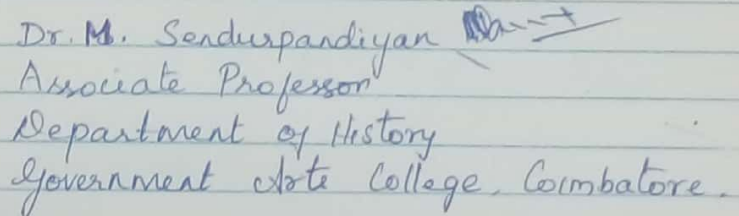 Dr. M. Senduspandiyan
Associate Professor
Department of History
Government Arts College, Coimbatore.